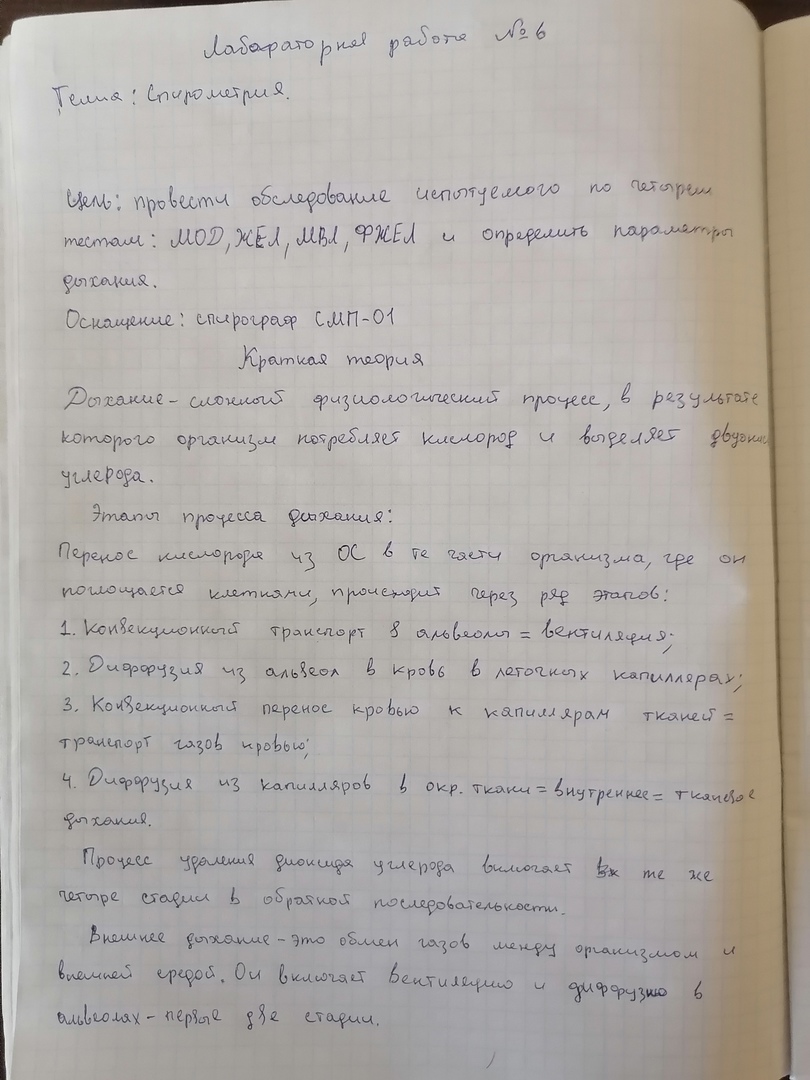 Лабораторная работа № 6
Тема: Спирометрия.
Цель: провести обследование испытуемого по четырем
тестам: МОД, ЖЕЛ, МВЛ, ФЖЕЛ и определить параметры
дыхания.
Оснащение: спирограф СМП-01
Краткая теория
Дыхание - сложный физиологический процесс, в результате
которого организм потребляет кислород и выделяет двуокись
углерода.
Этапы процесса дыхания:
Перенос кислорода из ОС в те части организма, где он
поглощается клетками, происходит через ряд этапов:
1. Конвекционный транспорт в альвеолы = вентиляция;
2. Диффузия из альвеол в кровь в легочных капиллярах;
3. Конвекционный перенос кровью к капиллярам тканей =
транспорт газов кровью;
4. Диффузия из капилляров в окр. ткани = внутреннее = тканевое
дыхания.
Процесс удаления диоксида углерода включает те же
четыре стадии в обратной последовательности.
Внешнее дыхание - это обмен газов между организмом и
внешней средой. Он включает вентиляцию и диффузию в
альвеолах - первые две стадии.